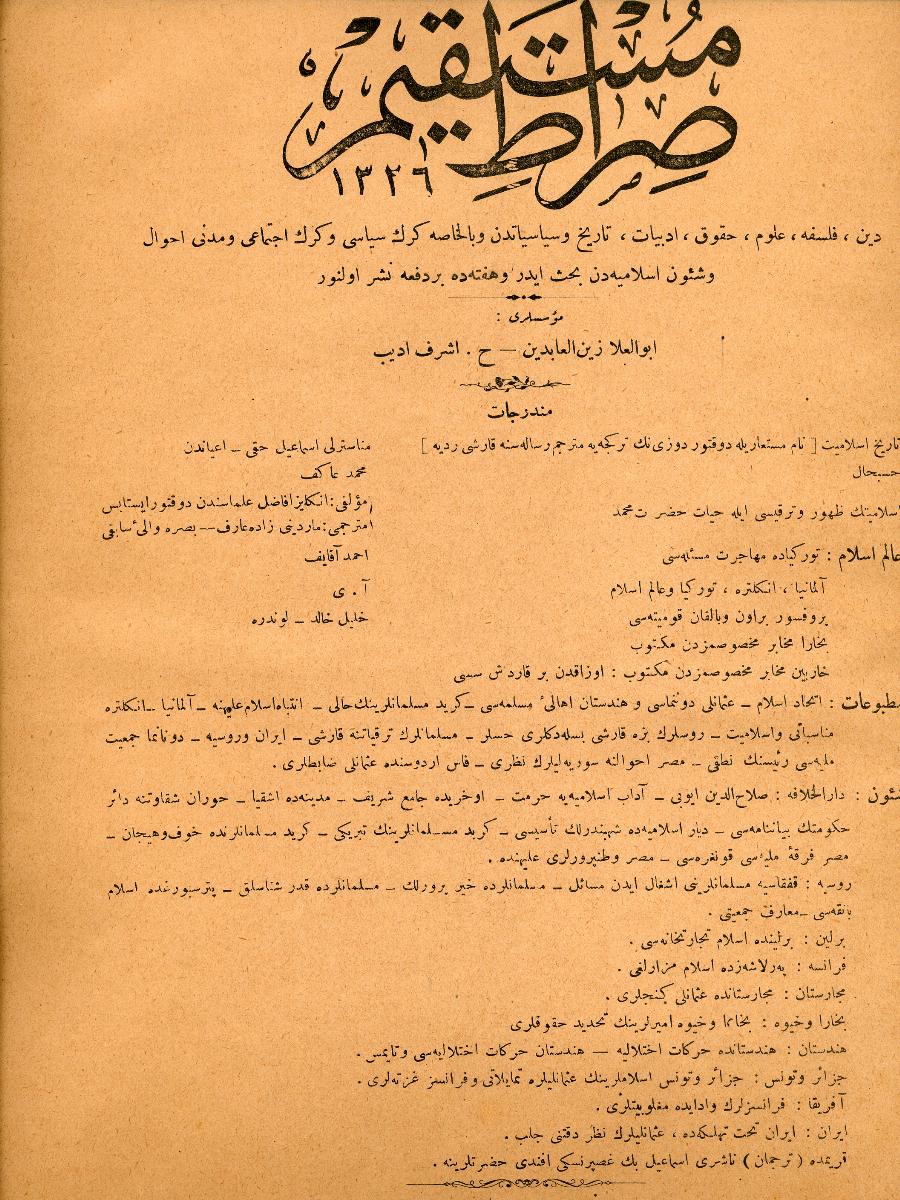 صراط مستقیم
١٣٢٦
دین ، فلسفه ، علوم ، حقوق ، ادبیات ، تاریخ وسیاسیاتدن وبالخاصه كرك سیاسی وكرك اجتماعی ومدنی احوال
وشئون اسلامیه‌دن بحث ایدر وهفته‌ده بردفعه نشر اولنور
مؤسسلری :
ابوالعلا زین‌العابدین — ح . اشرف ادیب
مندرجات
تاریخ اسلامیت [ نام مستعاریله دوقتور دوزی‌نك تركجه‌یه مترجم رساله‌سنه قارشی ردیه ] مناسترلی اسماعیل حقی ــ اعیاندن
حسبحال محمد عاكف
اسلامیتك ظهور وترقیسی ایله حیات حضرت محمد مؤلفی : انكلیز افاضل علماسندن دوقتور
مترجمی : ماردینی زاده عارف — بصره والیٔ سابقی
عالم اسلام : توركیاده مهاجرت مسئله‌سی احمد آقایف
آلمانیا ، انكلتره ، توركیا وعالم اسلام آ . ی
پروفسور براون وبالقان قومیته‌سی خلیل خالد ــ لوندره
بخارا مخابر مخصوصمزدن مكتوب
خاربین مخابر مخصوصمزدن مكتوب : اوزاقدن بر قارداش سسی
مطبوعات : اتحاد اسلام ــ عثمانلی دونماسی و هندستان اهالیٔ مسلمه‌سی ــ كرید مسلمانلرینك حالی ــ انتباه اسلام علیهنه ــ آلمانیا ــ انكلتره
مناسباتی واسلامیت ــ روسلرك بزه قارشی بسله‌دكلری حسلر ــ مسلمانلرك ترقیاتنه قارشی ــ ایران وروسیه ــ دونانما جمعیت
ملیه‌سی رئیسنك نطقی ــ مصر احوالنه سوریه‌لیلرك نظری ــ فاس اردوسنده عثمانلی ضابطلری .
شئون : دارالخلافه : صلاح‌الدین ایوبی ــ آداب اسلامیه‌یه حرمت ــ اوخریده جامع شریف ــ مدینه‌ده اشقیا ــ حوران شقاوتنه دائر
حكومتك بیاننامه‌سی ــ دیار اسلامیه‌ده شهبندرلك تأسیسی ــ كرید مسلمانلرینك تبریكی ــ كرید مسلمانلرنده خوف‌وهیجان ــ
مصر فرقهٔ ملیه‌سی قونغره‌سی ــ مصر وطنپرورلری علیهنده .
روسیه : قفقاسیه مسلمانلرینی اشغال ایدن مسائل ــ مسلمانلرده خیر پرورلك ــ مسلمانلرده قدر شناسلق ــ پترسبورغده اسلام
بانقه‌سی ــ معارف جمعیتی .
برلین : برلینده اسلام تجارتخانه‌سی .
فرانسه : پەرلاشەزده اسلام مزارلغی .
مجارستان : مجارستانده عثمانلی كنجلری .
بخارا وخیوه : بخارا وخیوه امیرلرینك تحدید حقوقلری
هندستان : هندستانده حركات اختلالیه — هندستان حركات اختلالیه‌سی وتایمس .
جزائر وتونس : جزائر وتونس اسلاملرینك عثمانلیلره تمایلاتی وفرانسز غزته‌لری .
آفریقا : فرانسزلرك وادایده مغلوبیتلری .
ایران : ایران تحت تهلكه‌ده ، عثمانلیلرك نظر دقتنی جلب .
قریمده ( ترجمان ) ناشری اسماعیل بك غصپرنسكی افندی حضرتلرینه .